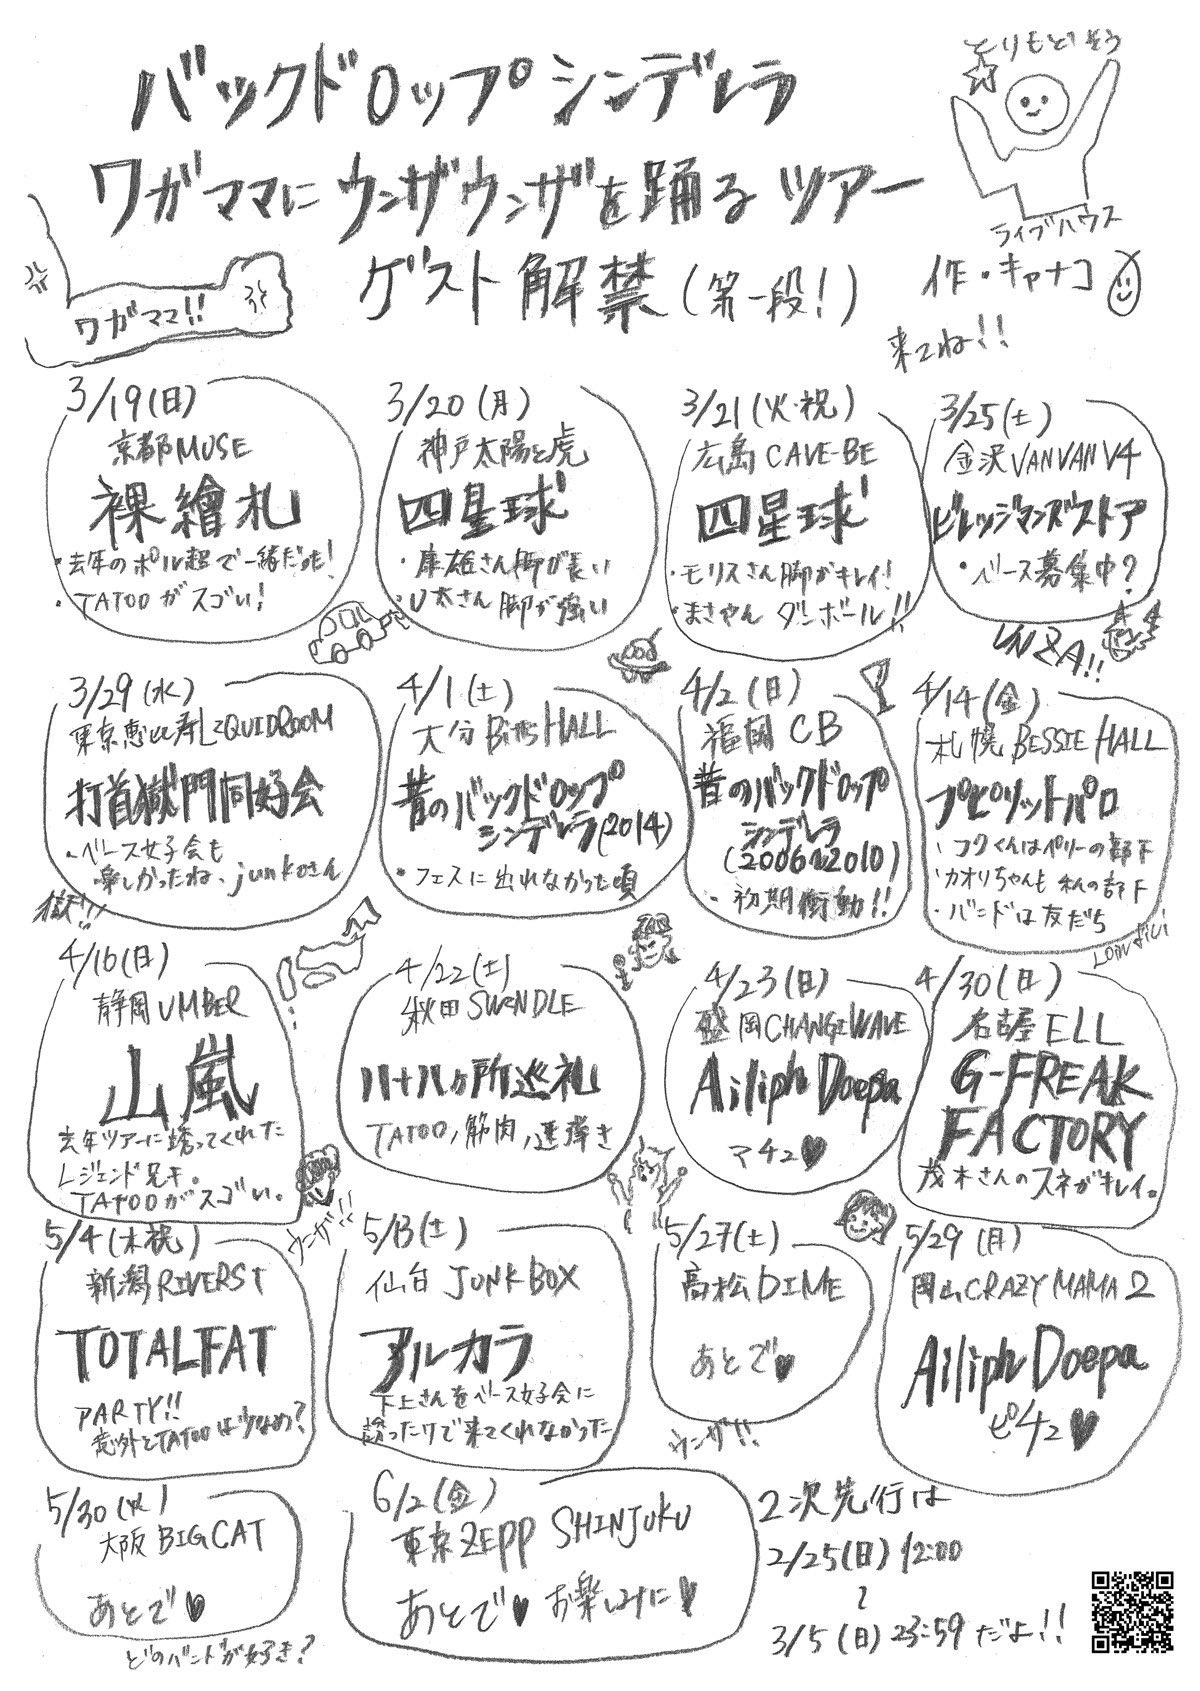 とりもどそう
バックドロップシンデレラ
ワガママにウンザウンザを踊るツアー
ライブハウス
ゲスト解禁(第一段!)
作・キャナコ
ワガママ!!
来てね!!
3/19(日)
京都MUSE
裸繪札
・去年のポルノ超で一緒だった!
・TATOOがスゴい!
3/20(月)
神戸太陽と虎
四星球
・康雄さん脚が長い
・U太さん脚が強い
3/21(火・祝)
広島 CAVE-BE
四星球
・モリスさん脚がキレイ!
・まさやん ダンボール!!
3/25(土)
金沢VANVANV4
ビレッジマンズストア
・ベース募集中?
UNZA!!
3/29(水)
東京恵比寿LIQUIDROOM
打首獄門同好会
・ベース女子会も
楽しかったね、junkoさん
獄!!
4/1(土)
大分BitsHALL
昔のバックドロップ
シンデレラ(2014)
・フェスに出れなかった頃
4/2(日)
福岡 CB
昔のバックドロップ
シンデレラ
(2006~2010)
・初期衝動!!
4/14(金)
札幌 BESSIE HALL
プピリットパロ
・フクくんはペリーの部下
・カオリちゃんも私の部下
・バンドは友だち
4/16(日)
静岡UMBER
山嵐
去年ツアーに誘ってくれた
レジェンド兄キ。
TATOOがスゴい。
ウンザ!!
4/22(土)
秋田SWINDLE
八十八ヶ所巡礼
TATOO,筋肉,速弾き
4/23(日)
盛岡CHANGEWAVE
Ailiph Doepa
アチュ♥
4/30(日)
名古屋ELL
G-FREAK
FACTORY
茂木さんのスネがキレイ。
5/4(木祝)
新潟RIVERST
TOTALFAT
PARTY!!
意外とTATOOは少なめ?
5/13(土)
仙台 JUNKBOX
アルカラ
下上さんをベース女子会に
誘ったけど来てくれなかった
5/27(土)
高松DIME
あとで♥
ウンザ!!
5/29(月)
岡山CRAZYMAMA2
Ailiph Doepa
ピチュ♥
5/30(火)
大阪BIGCAT
あとで♥
どのバンドが好き?
6/2(金)
東京ZEPP SHINJUKU
あとで♥ お楽しみに♥
2次先行は
2/25(日)12:00
~
3/5(日)23:59だよ!!